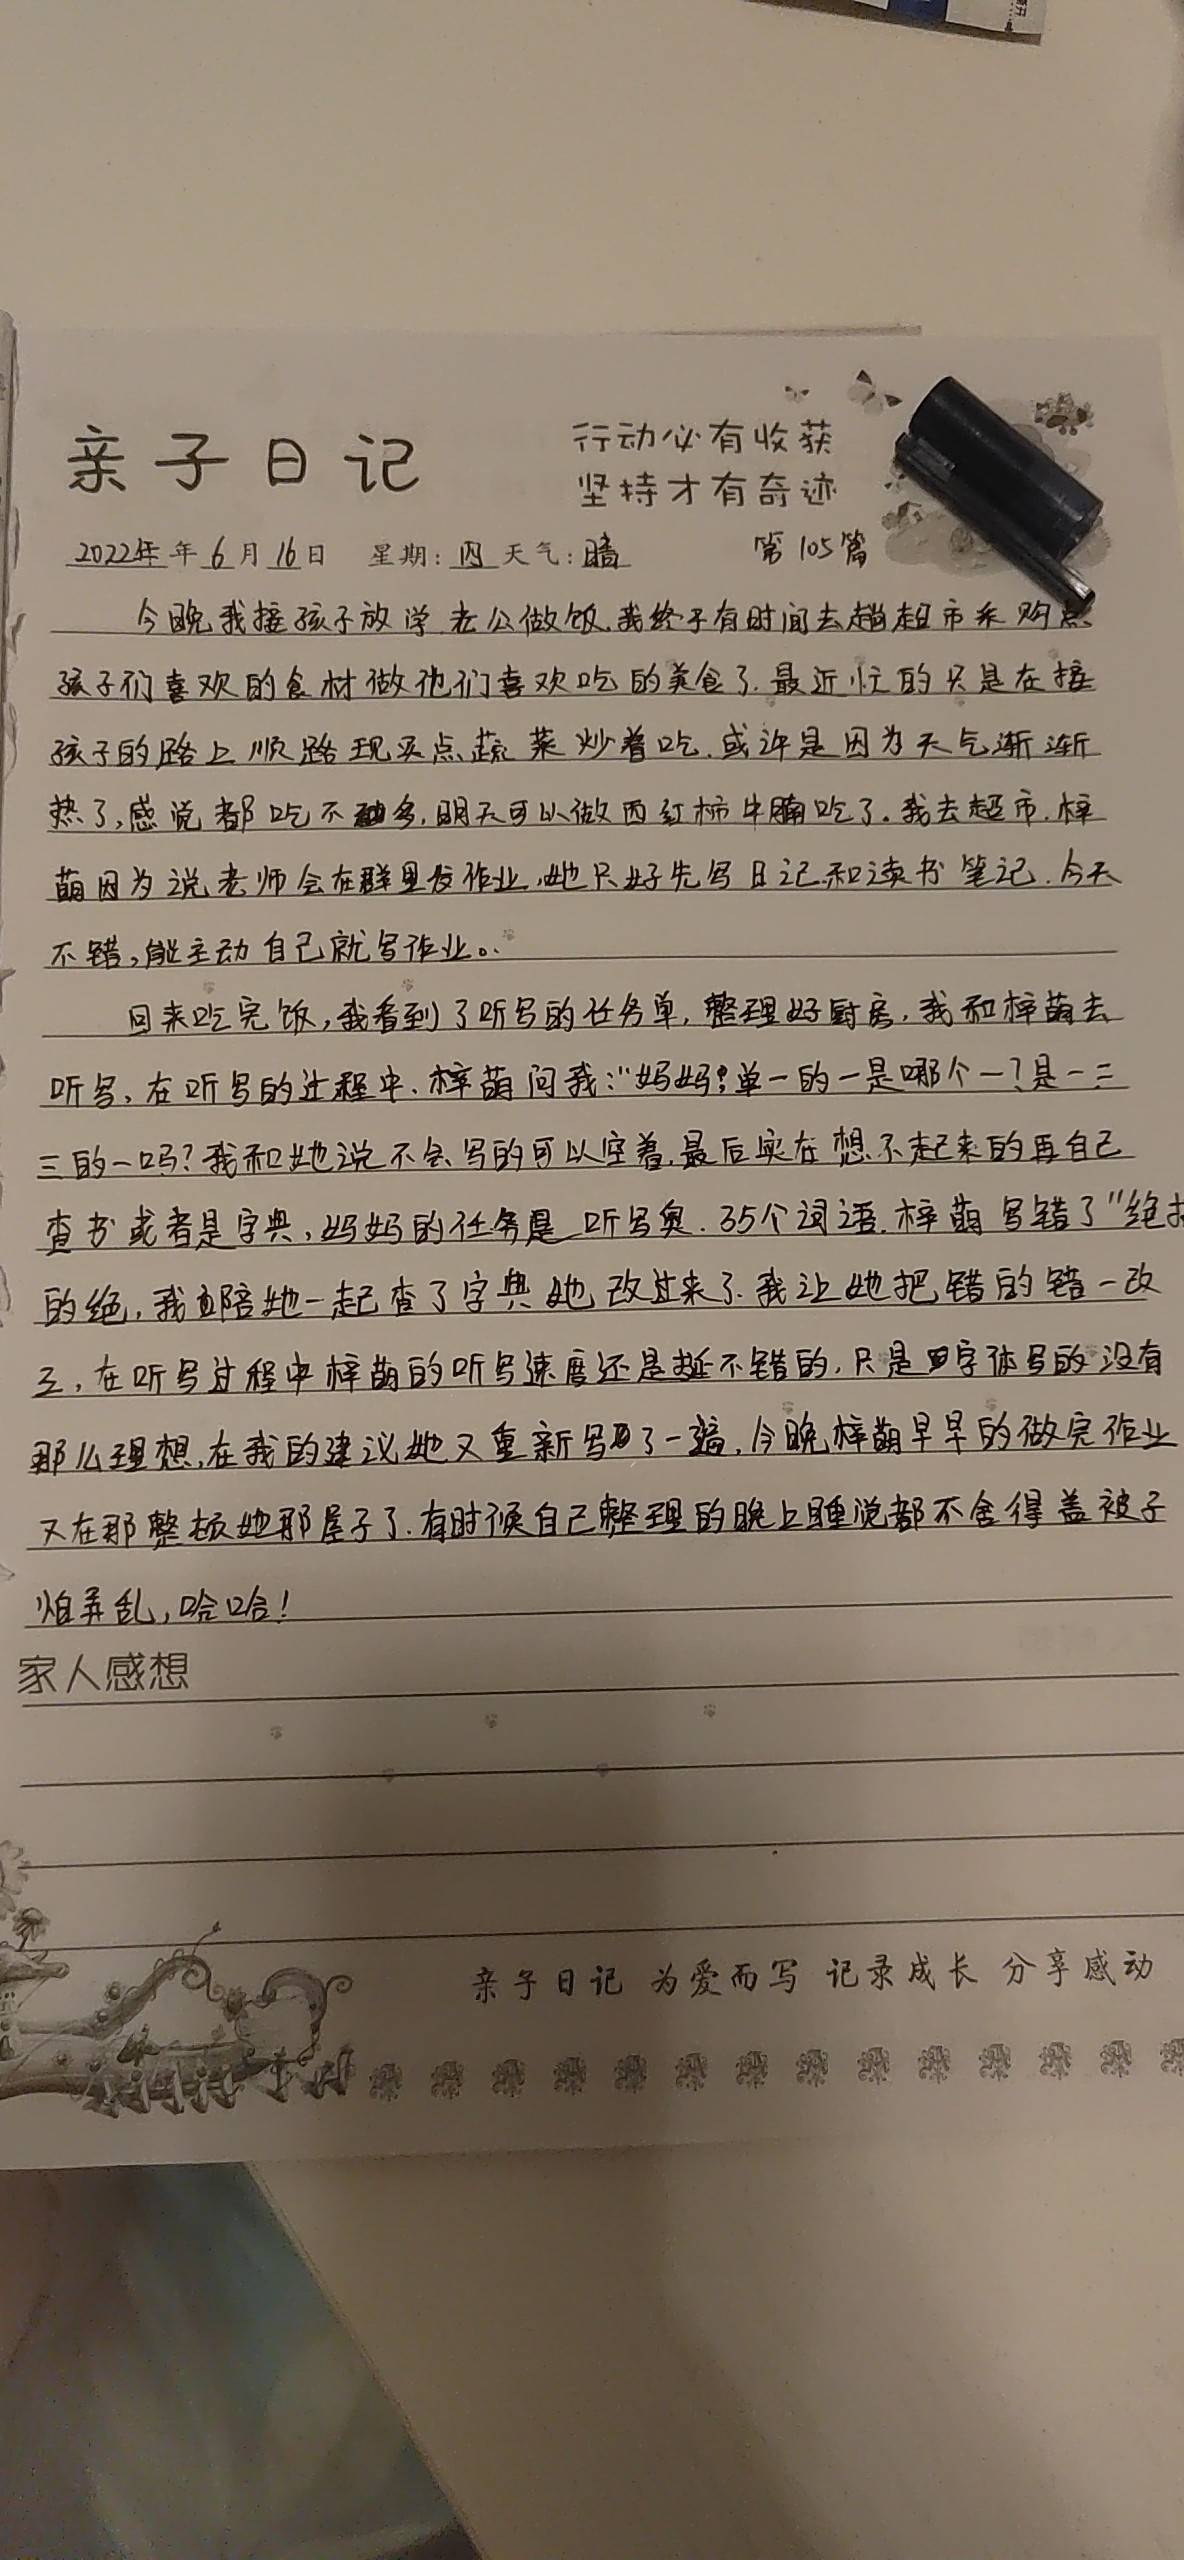 亲子日记
行动必有收获
坚持才有奇迹
2022年 年 6 月 16 日 星期: 四 天气: 晴 第105篇
今晚我接孩子放学.老公做饭.我终于有时间去趟超市采购点
孩子们喜欢的食材做他们喜欢吃的美食了.最近忙的只是在接
孩子的路上顺路现买点蔬菜炒着吃.或许是因为天气渐渐
热了,感觉都吃不多.明天可以做西红柿牛腩吃了。我去超市.梓
萌因为说老师会在群里发作业,她只好先写日记和读书笔记.今天
不错,能主动自己就写作业。
回来吃完饭,我看到了听写的任务单,整理好厨房,我和梓萌去
听写,在听写的过程中.梓萌问我:"妈妈!单一的一是哪个一?是一二
三的一吗?我和她说不会写的可以空着.最后实在想不起来的再自己
查书或者是字典,妈妈的任务是听写奥.35个词语.梓萌写错了"绝
的绝,我陪她一起查了字典她改过来了.我让她把错的错一改
三,在听写过程中梓萌的听写速度还是挺不错的,只是字体写的没有
那么理想,在我的建议她又重新写了一遍,今晚梓萌早早的做完作业
又在那整顿她那屋子了.有时候自己整理的晚上睡觉都不舍得盖被子
怕弄乱,哈哈!
家人感想
亲子日记 为爱而写 记录成长 分享感动